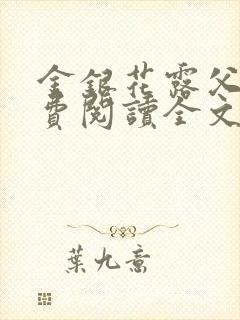 金銀花露父
費閱讀全文
葉九意